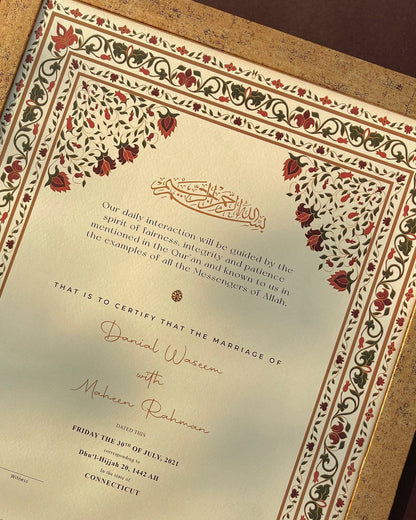 بسم الله الرحمن الرحيم
Our daily interaction will be guided by the
spirit of fairness, integrity and patience
mentioned in the Qur'an and known to us in
the examples of all the Messengers of Allah.
THAT IS TO CERTIFY THAT THE MARRIAGE OF
Danial Waseem
with
Maheen Rahman
DATED THIS
FRIDAY THE 30TH OF JULY, 2021
corresponding to
Dhu'l-Hijjah 20, 1442 AH
In the state of
CONNECTICUT
Witness